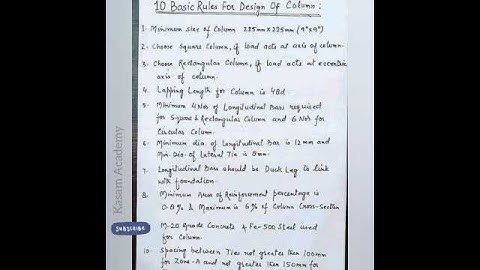 10 Basic Rules For Design Of Column:
1- Minimum size of Column 225mm x 225mm (9"x9")
2- Choose Square Column, if load acts at axis of column.
3- Choose Rectangular Column, if load acts at eccentric
axis of column.
4. Lapping Length for Column is 40d.
5. Minimum 4 Nos of Longitudinal Bars required
for Square & Rectangular Column and 6 Nos for
Circular Column.
6. Minimum dia. of Longitudinal Bar is 12mm and
Min. Dia. of Lateral Tie is 8mm.
7. Longitudinal Bars should be Duck Leg to link
with foundation.
8. Minimum Area of Reinforcement percentage is
0.8% & Maximum is 6% of Column Cross-Section
M-20 Grade Concrete & Fe-500 Steel used
for Column.
10. Spacing between Ties not greater than 100mm
for Zone-A and not greater than 150mm for
Kasam Academy
SUBSCRIBE